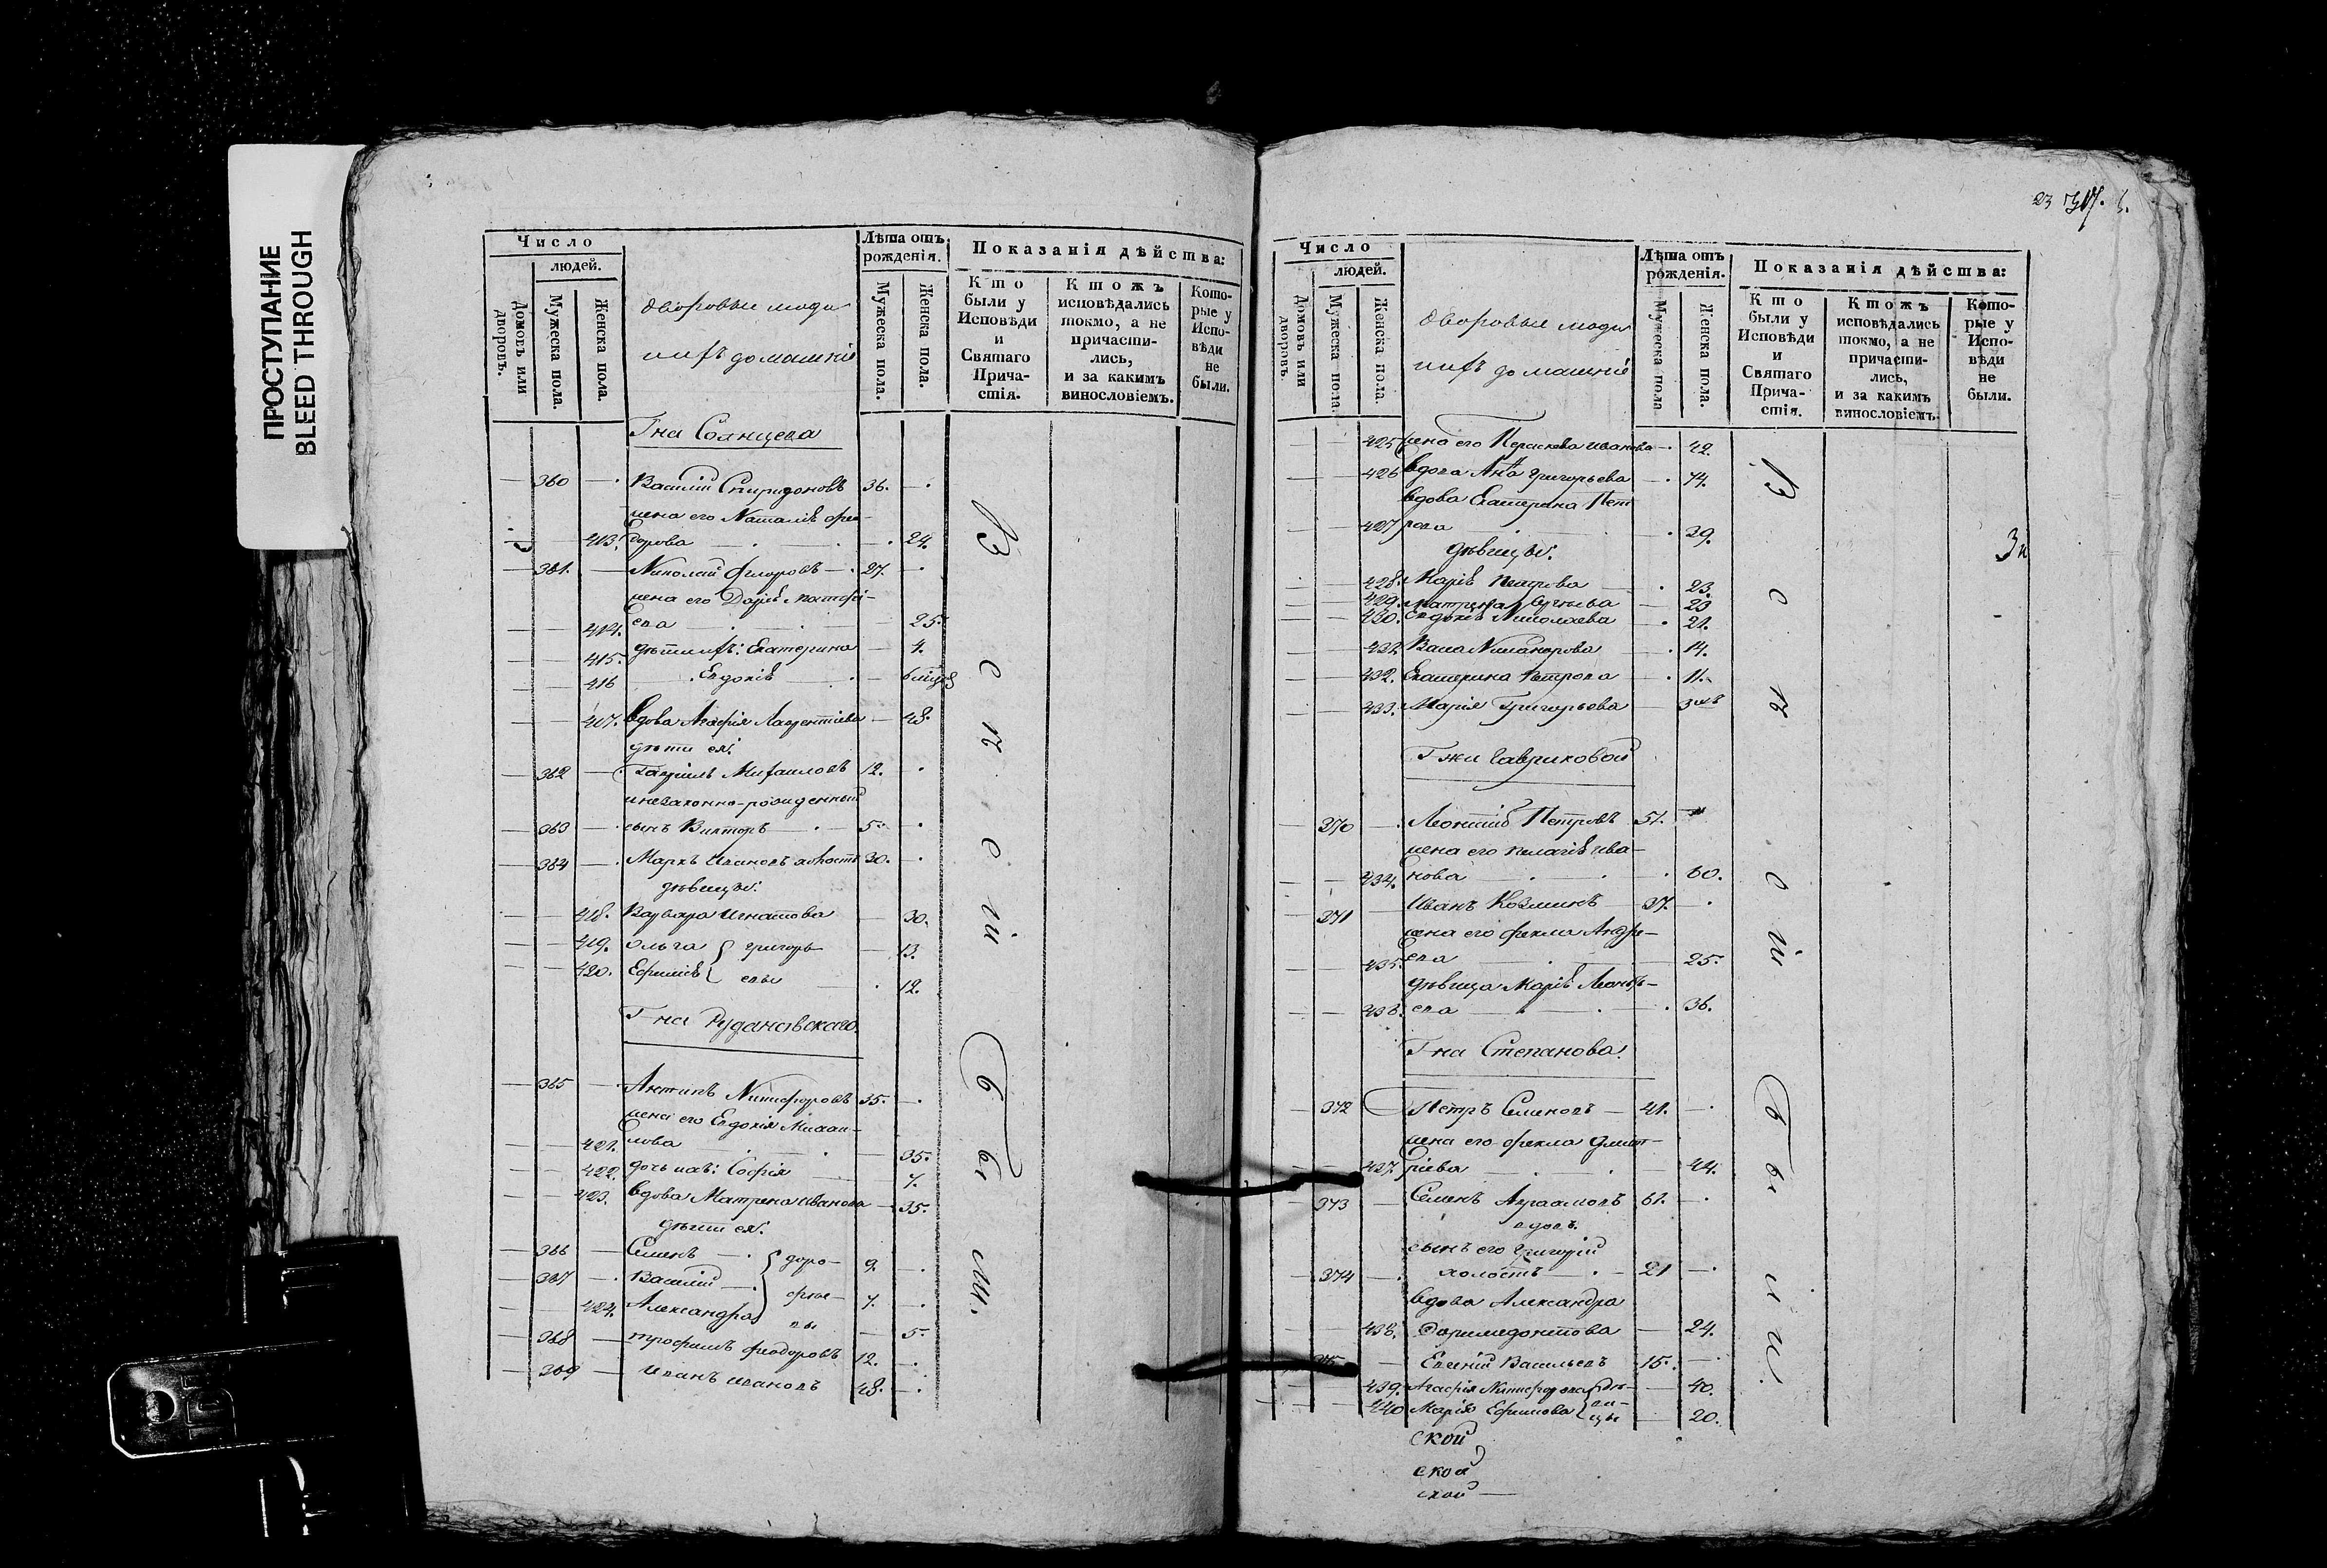 ПРОСТУПАНИЕ
BLEED THROUGH
Число
людей.
Домовъ или дворовъ.
Мужеска пола.
Женска пола.
дворовые люди
ихъ домашнiе
Лѣта отъ рожденія.
Мужеска пола.
Женска пола.
Показанія дѣйства:
Кто были у Исповѣди и Святаго Причастія.
Ктожъ исповѣдались токмо, а не причастились, и за какимъ винословіемъ.
Которые у Исповѣди не были.
Гна Солнцева
360 Василий Спиридоновъ 36.
жена его Наталiя Фео-
413. дорова 24.
361. Николай Федоровъ 27.
жена его Дарiя Матфѣ-
414. ева 25.
415. дѣти ихъ: Екатерина 4.
416 Евдокiя
417. вдова Агафiя Лаврентiева 48.
дѣти ея:
362 Гаврiилъ Михаиловъ 12.
и незаконно-рожденный
363 сынъ Викторъ 5.
364 Маркъ Ивановъ холостъ 30.
дѣвицы:
418. Варвара Игнатова 30.
419. Ольга григорь- 13.
420. Ефимiя евы 12.
Гна Рудановскаго.
365 Антипъ Никифоровъ 35.
жена его Евдокiя Михаи-
421. лова 35.
422. дочь ихъ: Софiя 7.
423. вдова Матрена Иванова 35.
дѣти ея:
366 Семенъ доро- 9.
367 Василiй фѣе- 7.
424. Александра вы 5.
368 трофимъ Феодоровъ 12.
369 Иванъ Ивановъ 48.
Всѣ
о
н
о
й
бы
ли.
23
Число
людей.
Домовъ или дворовъ.
Мужеска пола.
Женска пола.
дворовые люди
ихъ домашнiе
Лѣта отъ рожденія.
Мужеска пола
Женска пола.
Показанія дѣйства:
Кто были у Исповѣди и Святаго Причастія.
Ктожъ исповѣдались токмо, а не причастились, и за какимъ винословіемъ.
Которые у Исповѣди не были.
425 жена его Параскева Иванова 42.
426 вдова Анна Григорьева 74.
вдова Екатерина Пет-
427 рова 29.
дѣвицы:
428. Марiя Петрова 23.
429. Матрена 23
430. Евдокiя Николаева 21.
431. Васа Никанорова 14.
432. Екатерина Петрова 11.
433. Марiя Григорьева
Гжи Гавриковой
370 Леонтiй Петровъ 51.
жена его Пелагiя Ива-
434. нова 60.
371 Иванъ Козминъ 37.
жена его Фекла Андре-
435. ева 25.
дѣвица Марiя Леонть-
436. ева 36.
Гна Степанова.
372 Петръ Семеновъ 41.
жена его Фекла Дмит-
437. рiева 44.
373 Семенъ Авраамовъ 61.
вдовъ.
сынъ его Григорiй
374 холостъ 21
вдова Александра
438. Доримедонтова 24.
375 Евгенiй Васильевъ 15.
439. Агафiя Никифорова дѣ- 40.
440 Марiя Ефимова ви-цы 20.
ской
ской
ской